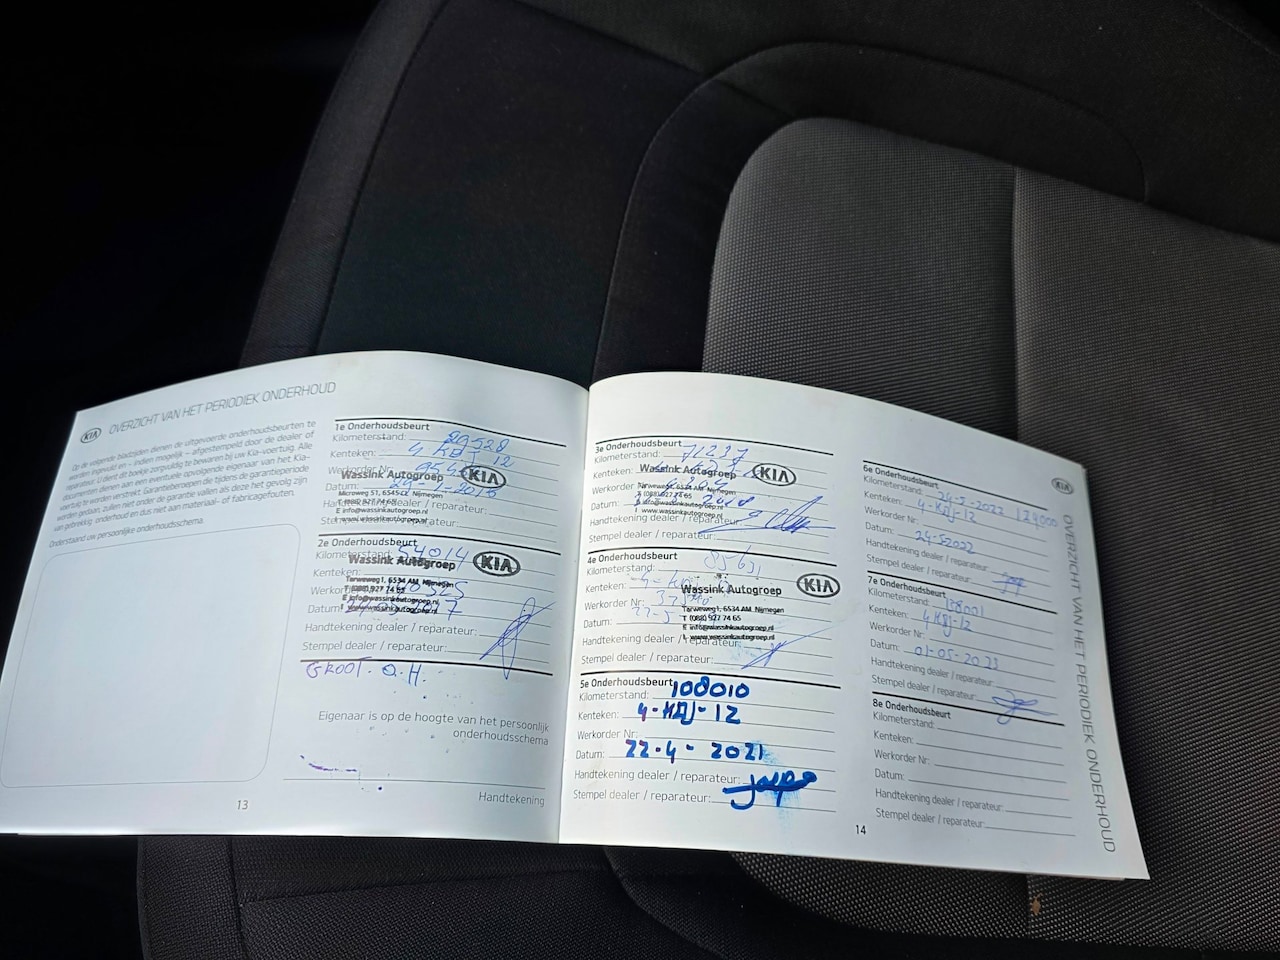 KIA OVERZICHT VAN HET PERIODIEK ONDERHOUD
Op de volgende bladzijden dienen de uitgevoerde onderhoudsbeurten te
worden ingevuld en – indien mogelijk – afgestempeld door de dealer of
reparateur. U dient dit boekje zorgvuldig te bewaren bij uw Kia-voertuig. Alle
documenten dienen aan een eventuele opvolgende eigenaar van het Kia-
voertuig te worden verstrekt. Garantieberoepen die tijdens de garantieperiode
worden gedaan, zullen niet onder de garantie vallen als deze het gevolg zijn
van gebrekkig onderhoud en dus niet aan materiaal- of fabricagefouten.
Onderstaand uw persoonlijke onderhoudsschema.
13
1e Onderhoudsbeurt
Kilometerstand:
Kenteken: 4 KDJ 12
Werkorder Nr:
Wassink Autogroep KIA
Datum:
Microweg 51, 6545 CL Nijmegen
E info@wassinkautogroep.nl
I www.wassinkautogroep.nl
2e Onderhoudsbeurt
Kilometerstand: 54014
Wassink Autogroep KIA
Kenteken:
Tarweweg 1, 6534 AM Nijmegen
T (088) 927 74 65
E info@wassinkautogroep.nl
I www.wassinkautogroep.nl
Datum:
Handtekening dealer / reparateur:
Stempel dealer / reparateur:
GROOT. O.H.
Eigenaar is op de hoogte van het persoonlijk
onderhoudsschema
Handtekening
3e Onderhoudsbeurt
Kilometerstand: 71237
Kenteken:
Wassink Autogroep KIA
Werkorder
Tarweweg 1, 6534 AM Nijmegen
T (088) 927 74 65
Datum:
E info@wassinkautogroep.nl
I www.wassinkautogroep.nl
Handtekening dealer / reparateur:
Stempel dealer / reparateur:
4e Onderhoudsbeurt
Kilometerstand: 85631
Kenteken:
Wassink Autogroep KIA
Werkorder Nr:
Tarweweg 1, 6534 AM Nijmegen
T (088) 927 74 65
Datum:
E info@wassinkautogroep.nl
I www.wassinkautogroep.nl
Handtekening dealer / reparateur:
Stempel dealer / reparateur:
5e Onderhoudsbeurt
Kilometerstand: 108010
Kenteken: 4-KDJ-12
Werkorder Nr:
Datum: 22-4-2021
Handtekening dealer / reparateur:
Stempel dealer / reparateur:
14
6e Onderhoudsbeurt
Kilometerstand: 24-5-2022 124000
Kenteken: 4-KDJ-12
Werkorder Nr:
Datum: 24-5-2022
Handtekening dealer / reparateur:
Stempel dealer / reparateur:
7e Onderhoudsbeurt
Kilometerstand:
Kenteken: 4 KDJ-12
Werkorder Nr:
Datum: 01-05-2023
Handtekening dealer / reparateur:
Stempel dealer / reparateur:
8e Onderhoudsbeurt
Kilometerstand:
Kenteken:
Werkorder Nr:
Datum:
Handtekening dealer / reparateur:
Stempel dealer / reparateur:
KIA OVERZICHT VAN HET PERIODIEK ONDERHOUD